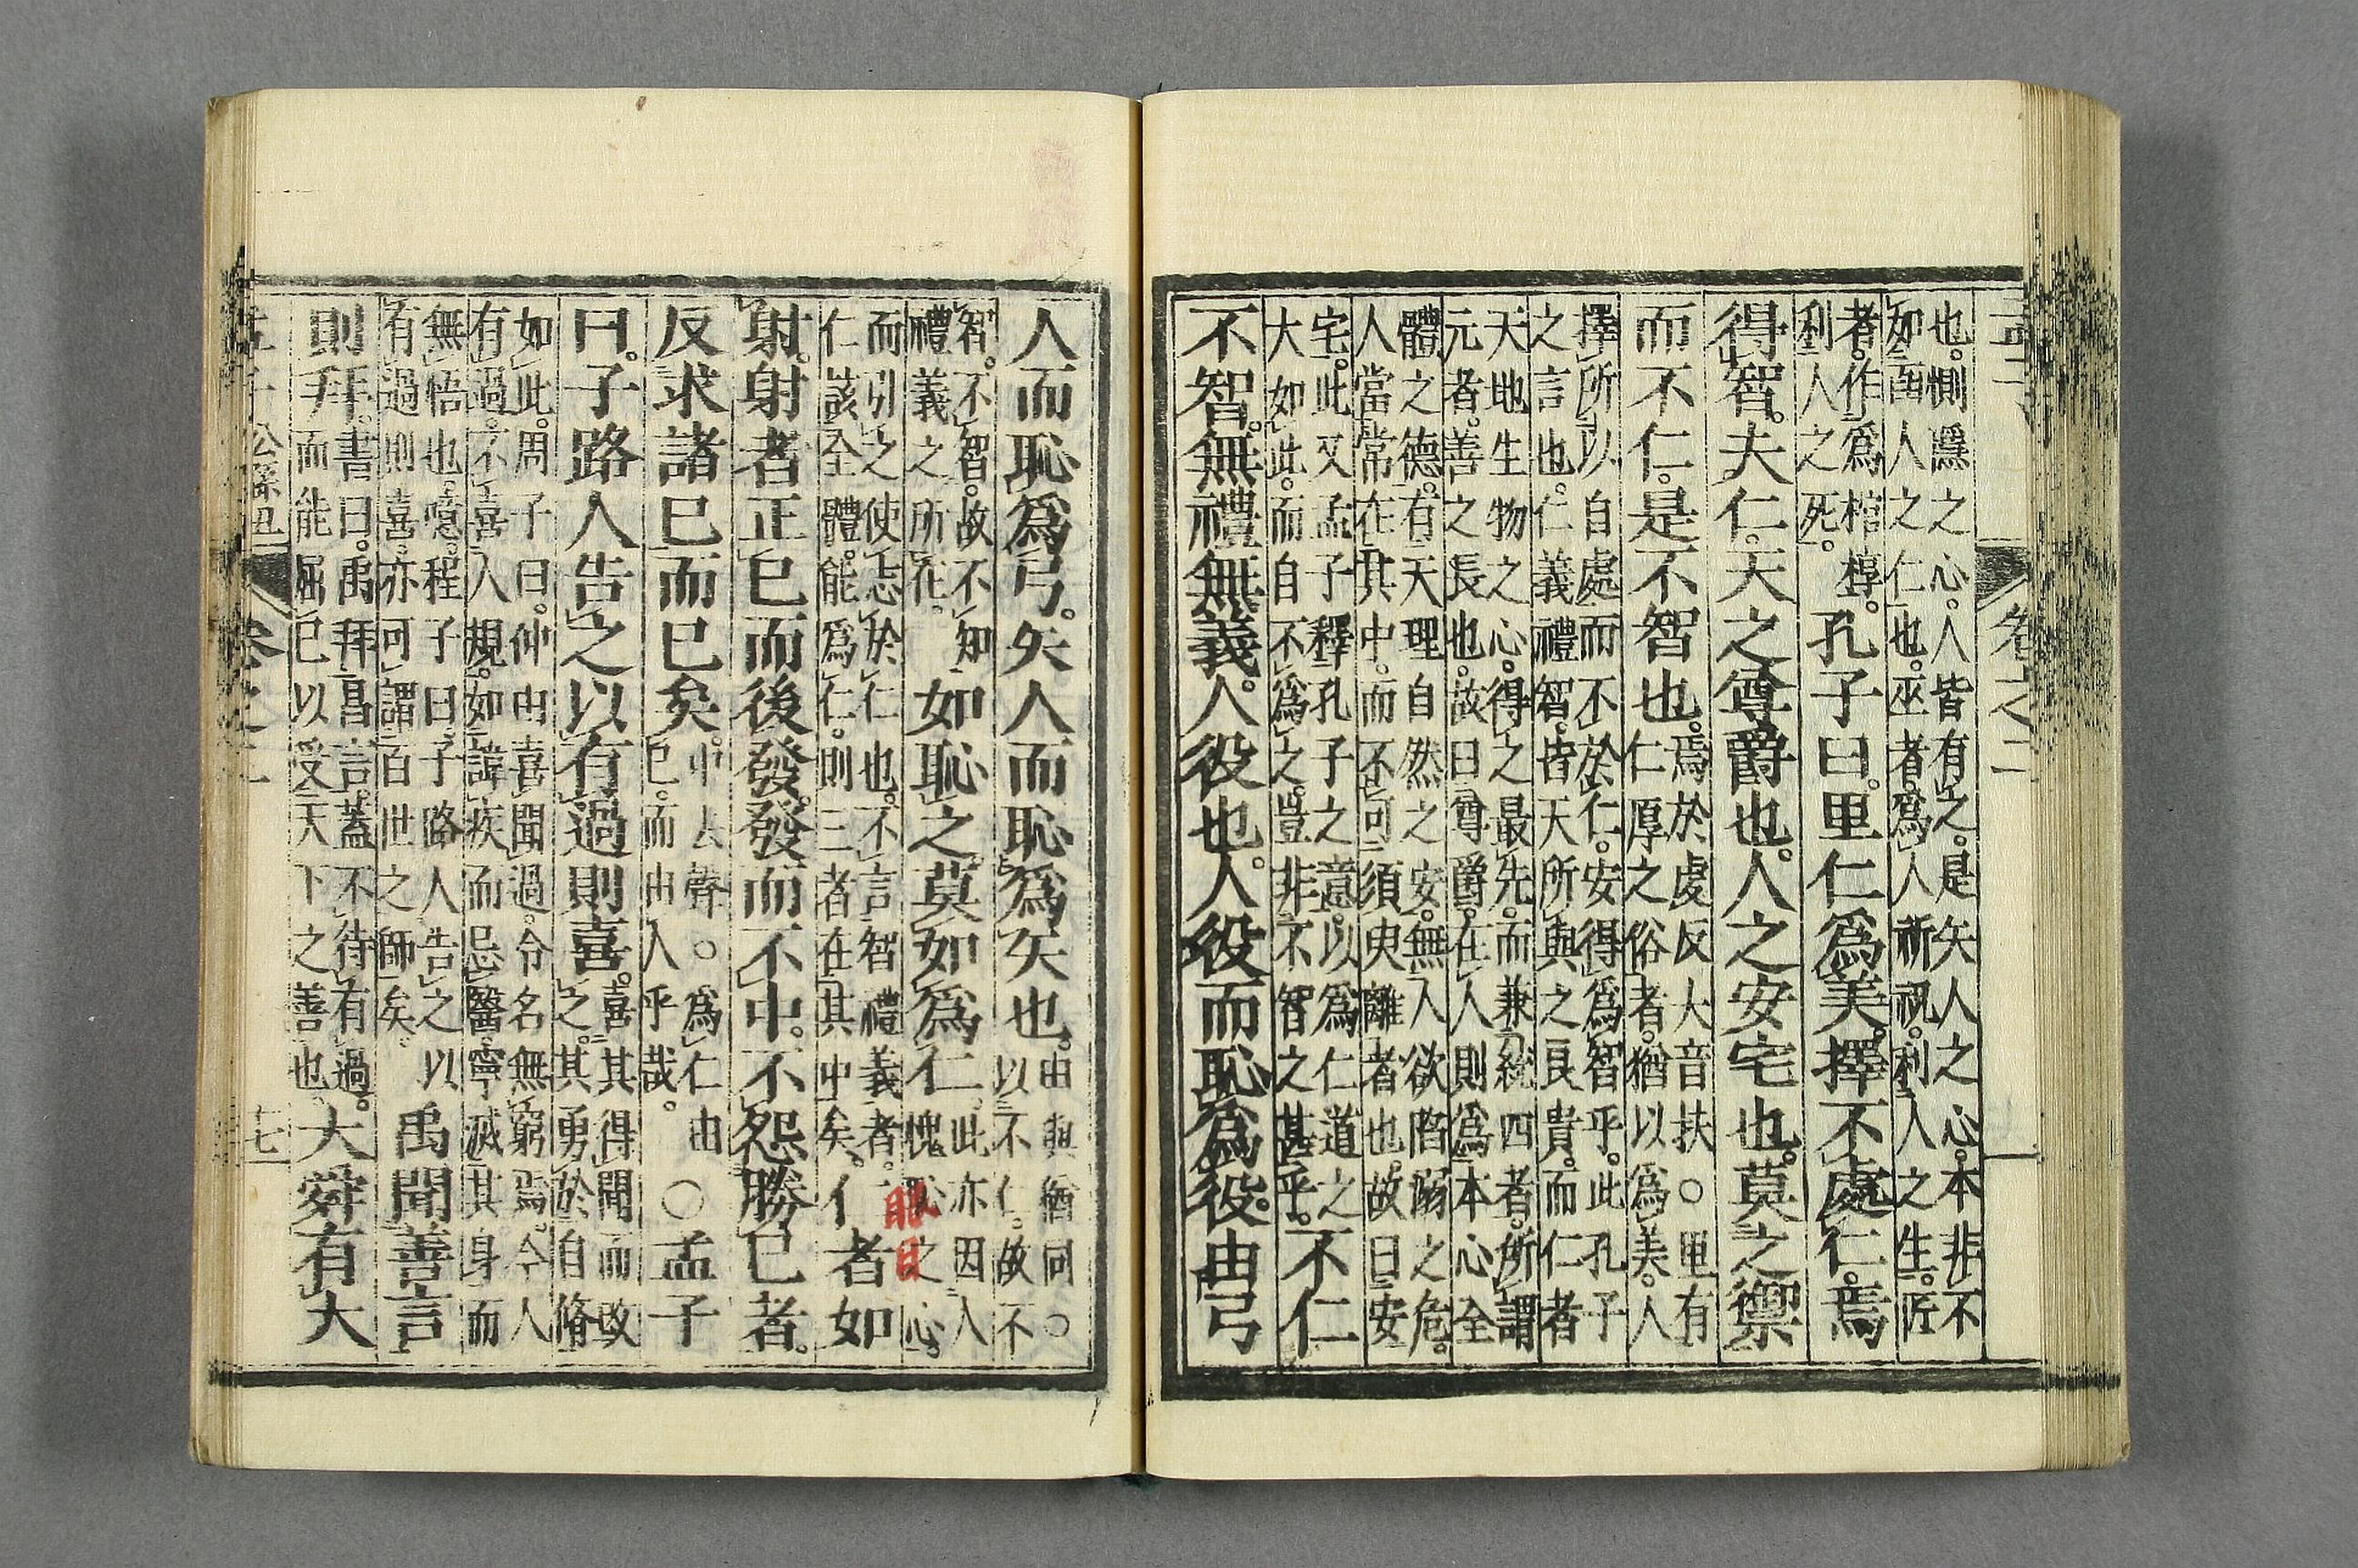 卷之二
也。惻隱之心。人皆有之。是矢人之心。本非不
如函人之仁也。巫者。爲人祈祝。利人之生。匠
者。作爲棺椁。
利人之死。
孔子曰。里仁爲美。擇不處仁。焉
得智。夫仁。天之尊爵也。人之安宅也。莫之禦
而不仁。是不智也。
焉於虔反大音扶○里有
仁厚之俗者。猶以爲美。人
擇所以自處而不於仁。安得爲智乎。此孔子
之言也。仁義禮智。皆天所與之良貴。而仁者
天地生物之心。得之最先。而兼統四者。所謂
元者。善之長也。故曰尊爵。在人則爲本心全
體之德。有天理自然之安。無人欲陷溺之危。
人當常在其中。而不可須臾離者也。故曰安
宅。此又孟子釋孔子之意。以爲仁道之
大如此。而自不爲之。豈非不智之甚乎。
不仁
不智。無禮無義。人役也。人役而恥爲役。由弓
人而恥爲弓。矢人而恥爲矢也。
由與猶同○
以不仁。故不
智。不智。故不知
禮義之所在。
如恥之。莫如爲仁。
此亦因人
愧恥之心。
而引之使志於仁也。不言智禮義者。
仁該全體。能爲仁。則三者在其中矣。
仁者如
射。射者正已而後發。發而不中。不怨勝已者。
反求諸已而已矣。
中去聲○爲仁由
已。而由人乎哉。
○孟子
曰。子路人告之以有過則喜。
喜其得聞而改
之。其勇於自脩
如此。周子曰。仲由喜聞過。令名無窮焉。今人
有過。不喜人規。如諱疾而忌醫。寧滅其身而
無悟也。噫。程子曰。子路人告之以
有過則喜。亦可謂百世之師矣。
禹聞善言
則拜。
書曰。禹拜昌言。蓋不待有過。
而能屈已以受天下之善也。
大舜有大
公孫丑 卷之二 十七